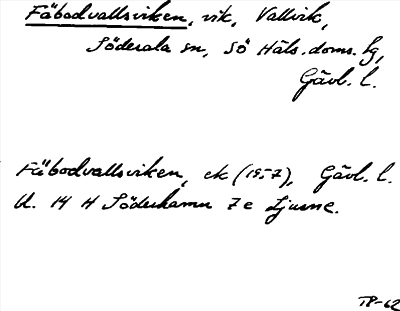 Fäbodvallsviken, vik, Vallvik,
Söderala sn, Sö Häls. doms. hg,
Gävl. l.
Fäbodvallsviken, ek (1957), Gävl. l.
U. 14 H Söderhamn 7 e Ljusne.
TP-62